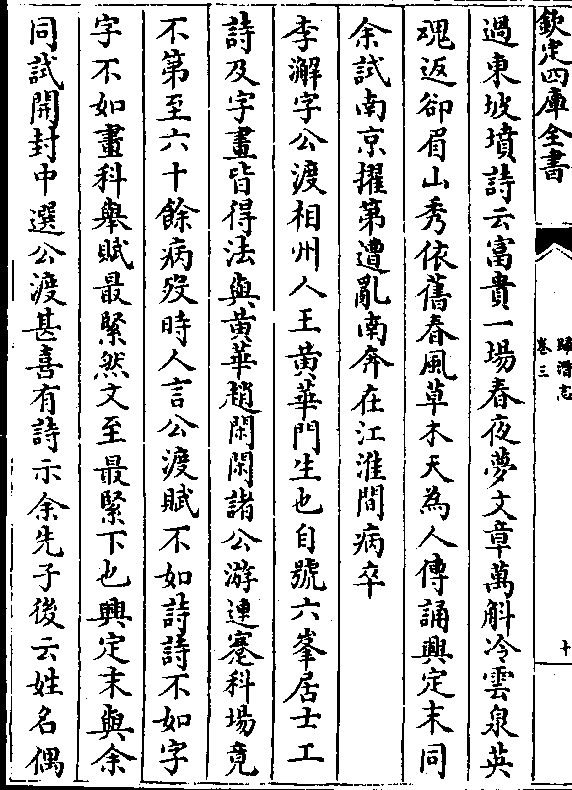 欽定四庫全書
歸潛志
卷三
十
過東坡墳詩云富貴一場春夜夢文章萬斛冷雲泉英
魂返卻眉山秀依舊春風草木天為人傳誦興定末同
余試南京擢第遭亂南奔在江淮間病卒
李澥字公渡相州人王黄華門生也自號六峯居士工
詩及字畫皆得法與黄華趙閑閑諸公游連蹇科場竟
不第至六十餘病歿時人言公渡賦不如詩詩不如字
字不如畫科舉賦最緊然文至最緊下也興定末與余
同試開封中選公渡甚喜有詩示余先子後云姓名偶